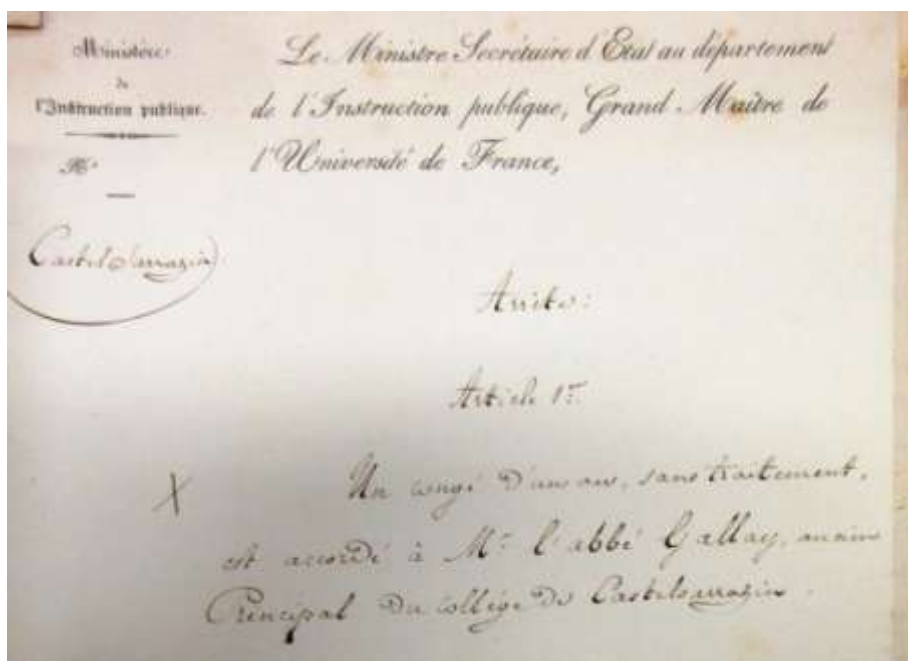 Ministère
de
l'Instruction publique.
N°
Castelsarrazin
Le Ministre Secrétaire d'Etat au département
de l'Instruction publique, Grand-Maître de
l'Université de France,
Arrête:
Article 1er
X
Un congé d'un an, sans traitement,
est accordé à Mr l'abbé Gallay, ancien
Principal du collège de Castelsarrazin.